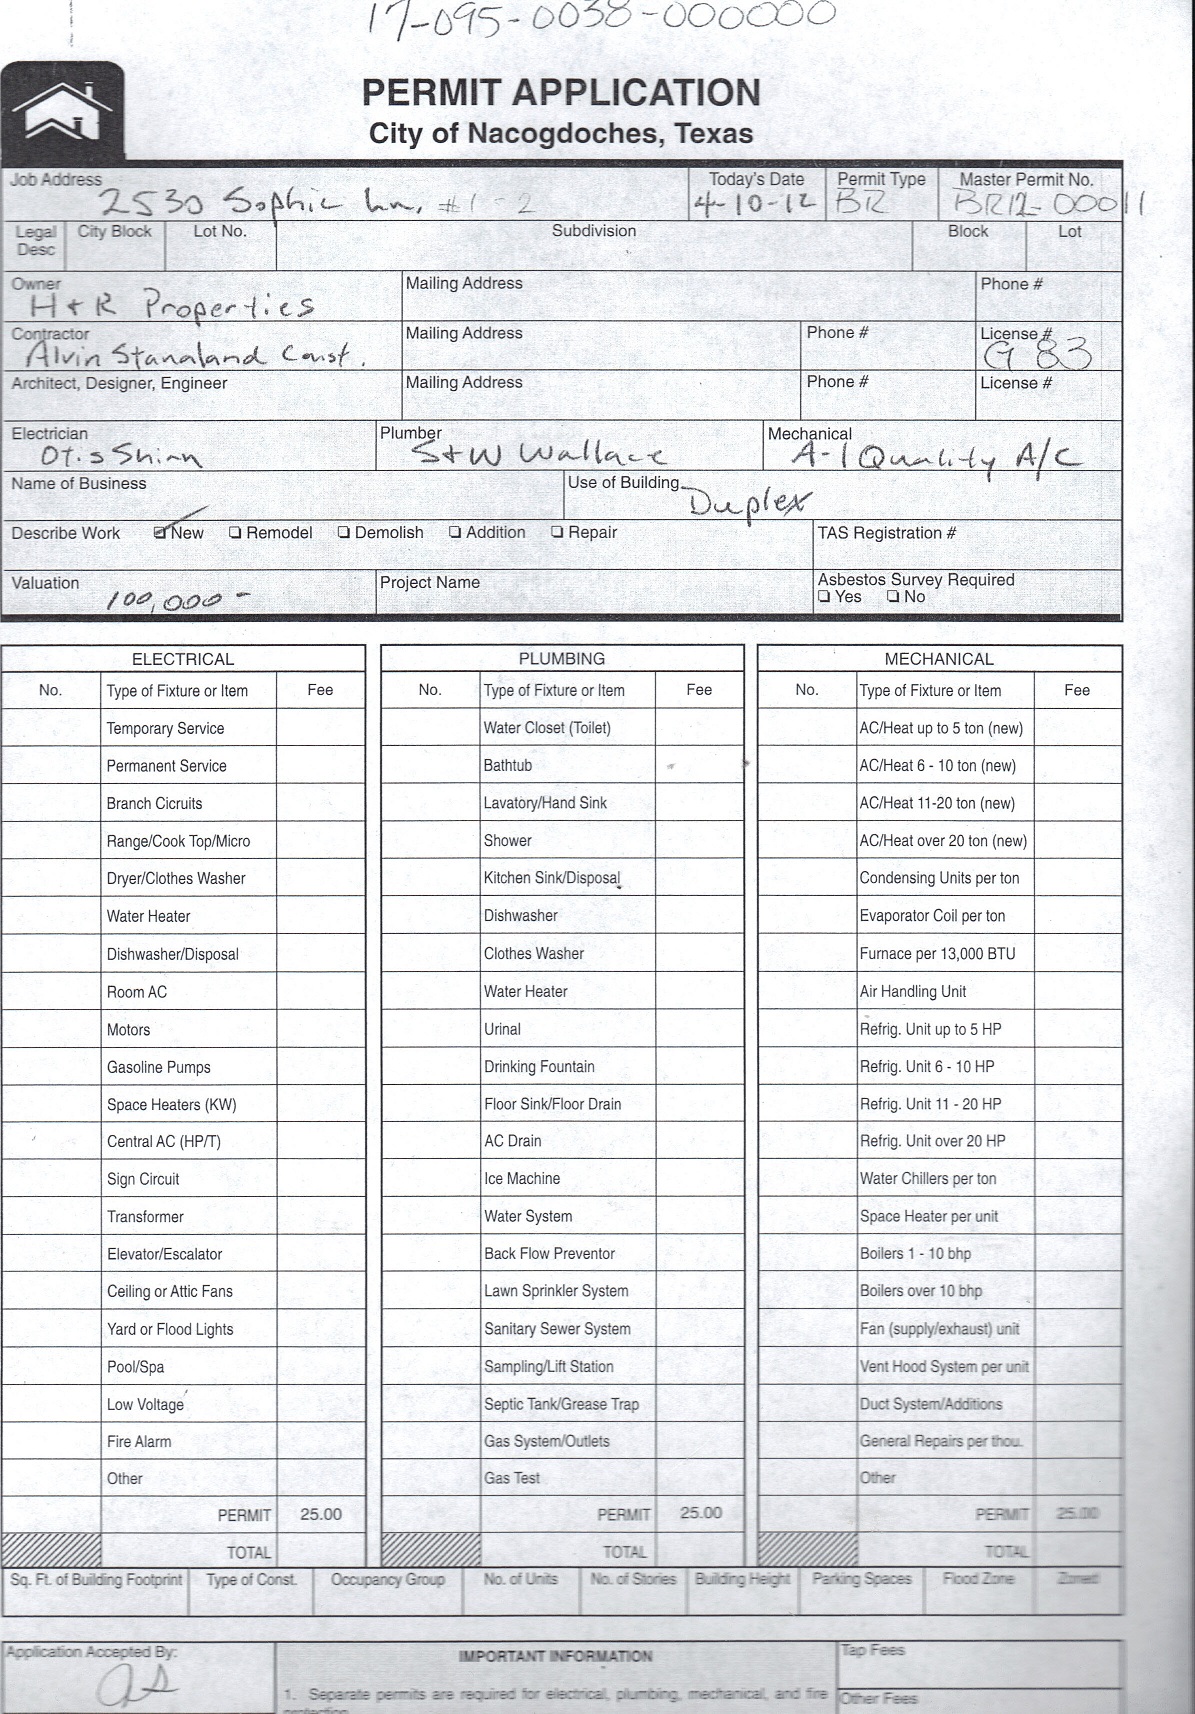 17-095-0038-000000
PERMIT APPLICATION
City of Nacogdoches, Texas
Job Address 2530 Sophie Ln, #1-2 Today's Date 4-10-12 Permit Type BR Master Permit No. BR12-00011
Legal Desc City Block Lot No. Subdivision Block Lot
Owner H+R Properties Mailing Address Phone #
Contractor Alvin Stanaland Const. Mailing Address Phone # License # G 83
Architect, Designer, Engineer Mailing Address Phone # License #
Electrician Otis Shinn Plumber S+W Wallace Mechanical A-1 Quality A/C
Name of Business Use of Building Duplex
Describe Work New Remodel Demolish Addition Repair TAS Registration #
Valuation 100,000- Project Name Asbestos Survey Required
Yes No
ELECTRICAL PLUMBING MECHANICAL
No. Type of Fixture or Item Fee No. Type of Fixture or Item Fee No. Type of Fixture or Item Fee
Temporary Service Water Closet (Toilet) AC/Heat up to 5 ton (new)
Permanent Service Bathtub AC/Heat 6 - 10 ton (new)
Branch Cicruits Lavatory/Hand Sink AC/Heat 11-20 ton (new)
Range/Cook Top/Micro Shower AC/Heat over 20 ton (new)
Dryer/Clothes Washer Kitchen Sink/Disposal Condensing Units per ton
Water Heater Dishwasher Evaporator Coil per ton
Dishwasher/Disposal Clothes Washer Furnace per 13,000 BTU
Room AC Water Heater Air Handling Unit
Motors Urinal Refrig. Unit up to 5 HP
Gasoline Pumps Drinking Fountain Refrig. Unit 6 - 10 HP
Space Heaters (KW) Floor Sink/Floor Drain Refrig. Unit 11 - 20 HP
Central AC (HP/T) AC Drain Refrig. Unit over 20 HP
Sign Circuit Ice Machine Water Chillers per ton
Transformer Water System Space Heater per unit
Elevator/Escalator Back Flow Preventor Boilers 1 - 10 bhp
Ceiling or Attic Fans Lawn Sprinkler System Boilers over 10 bhp
Yard or Flood Lights Sanitary Sewer System Fan (supply/exhaust) unit
Pool/Spa Sampling/Lift Station Vent Hood System per unit
Low Voltage Septic Tank/Grease Trap Duct System/Additions
Fire Alarm Gas System/Outlets General Repairs per thou.
Other Gas Test Other
PERMIT 25.00 PERMIT 25.00 PERMIT 25.00
TOTAL TOTAL TOTAL
Sq. Ft. of Building Footprint Type of Const. Occupancy Group No. of Units No. of Stories Building Height Parking Spaces Flood Zone
Application Accepted By: IMPORTANT INFORMATION Tap Fees
1. Separate permits are required for electrical, plumbing, mechanical, and fire Other Fees